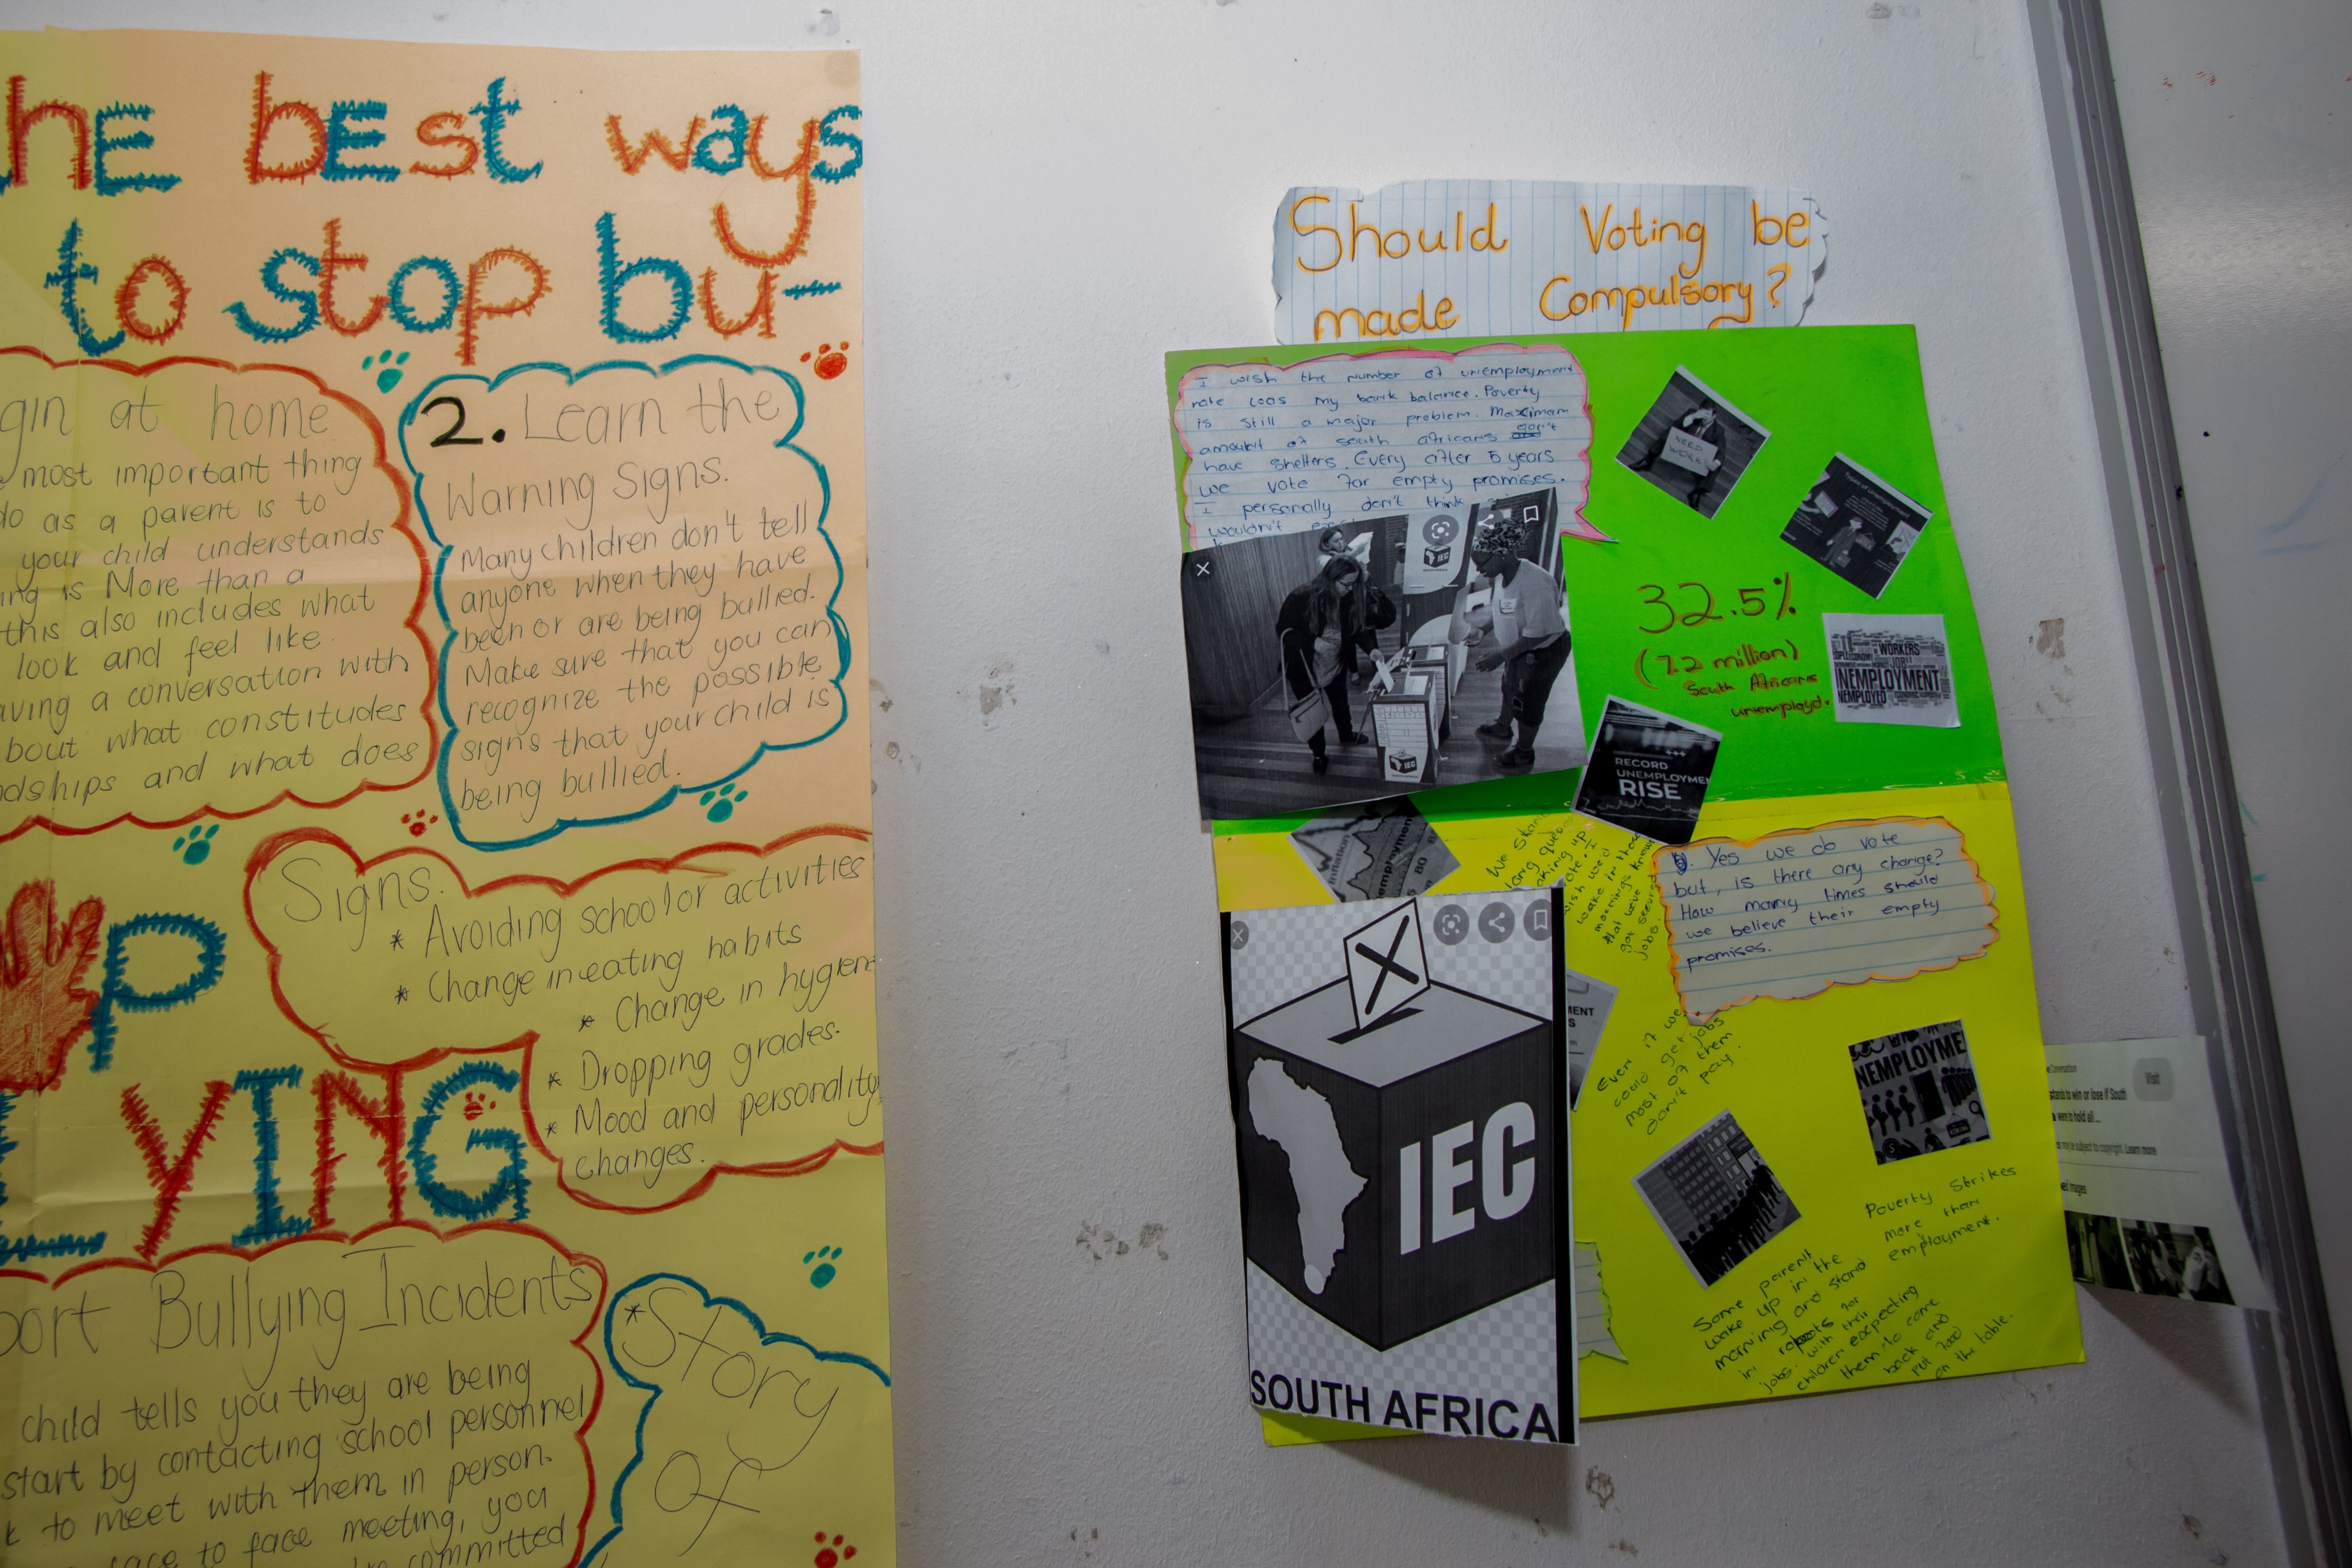 he best ways
to stop bu-
gin at home
most important thing
do as a parent is to
your child understands
ing is More than a
this also includes what
look and feel like.
aving a conversation with
bout what constitudes
ndships and what does
2. Learn the
Warning Signs.
Many children don't tell
anyone when they have
been or are being bullied.
Make sure that you can
recognize the possible
signs that your child is
being bullied.
P
LYING
Signs.
* Avoiding school or activities
* Change in eating habits
* Change in hygien
* Dropping grades.
* Mood and personality
changes.
port Bullying Incidents
child tells you they are being
start by contacting school personnel
k to meet with them in person.
face to face meeting, you
committed
*Story
of
Should Voting be
made Compulsory?
I wish the number of unemployment
rate was my bank balance. Poverty
is still a major problem. Maximam
amount of south africans don't
have shelters. Every after 5 years
we vote for empty promises.
I personally don't think
wouldn't
IEC
IEC
SOUTH AFRICA
NEED
WORK
Types of Unemployment
32.5%
(7.2 million)
South Africans
unemployd.
WORKERS
JOB
NEMPLOYMENT
NEMPLOYED
RECORD
UNEMPLOYMEN
RISE
Inflation
employment
We stan
long queu
aking up
ote. I
wish we'd
wake in these
mornings know
that we've
got secured
jobs.
. Yes we do vote
but, is there any change?
How many times should
we believe their empty
promises.
MENT
S
Even if we
could get jobs
most of them
don't pay.
IEC
SOUTH AFRICA
NEMPLOYME
Poverty Strikes
more than
employment.
Some parent
wake up in the
morning and stand
in robots for
jobs. with their
children expecting
them to come
back and
put food
on the table.
Conversation
Visit
stands to win or lose if South
were to hold all ...
may be subject to copyright. Learn more
ed images